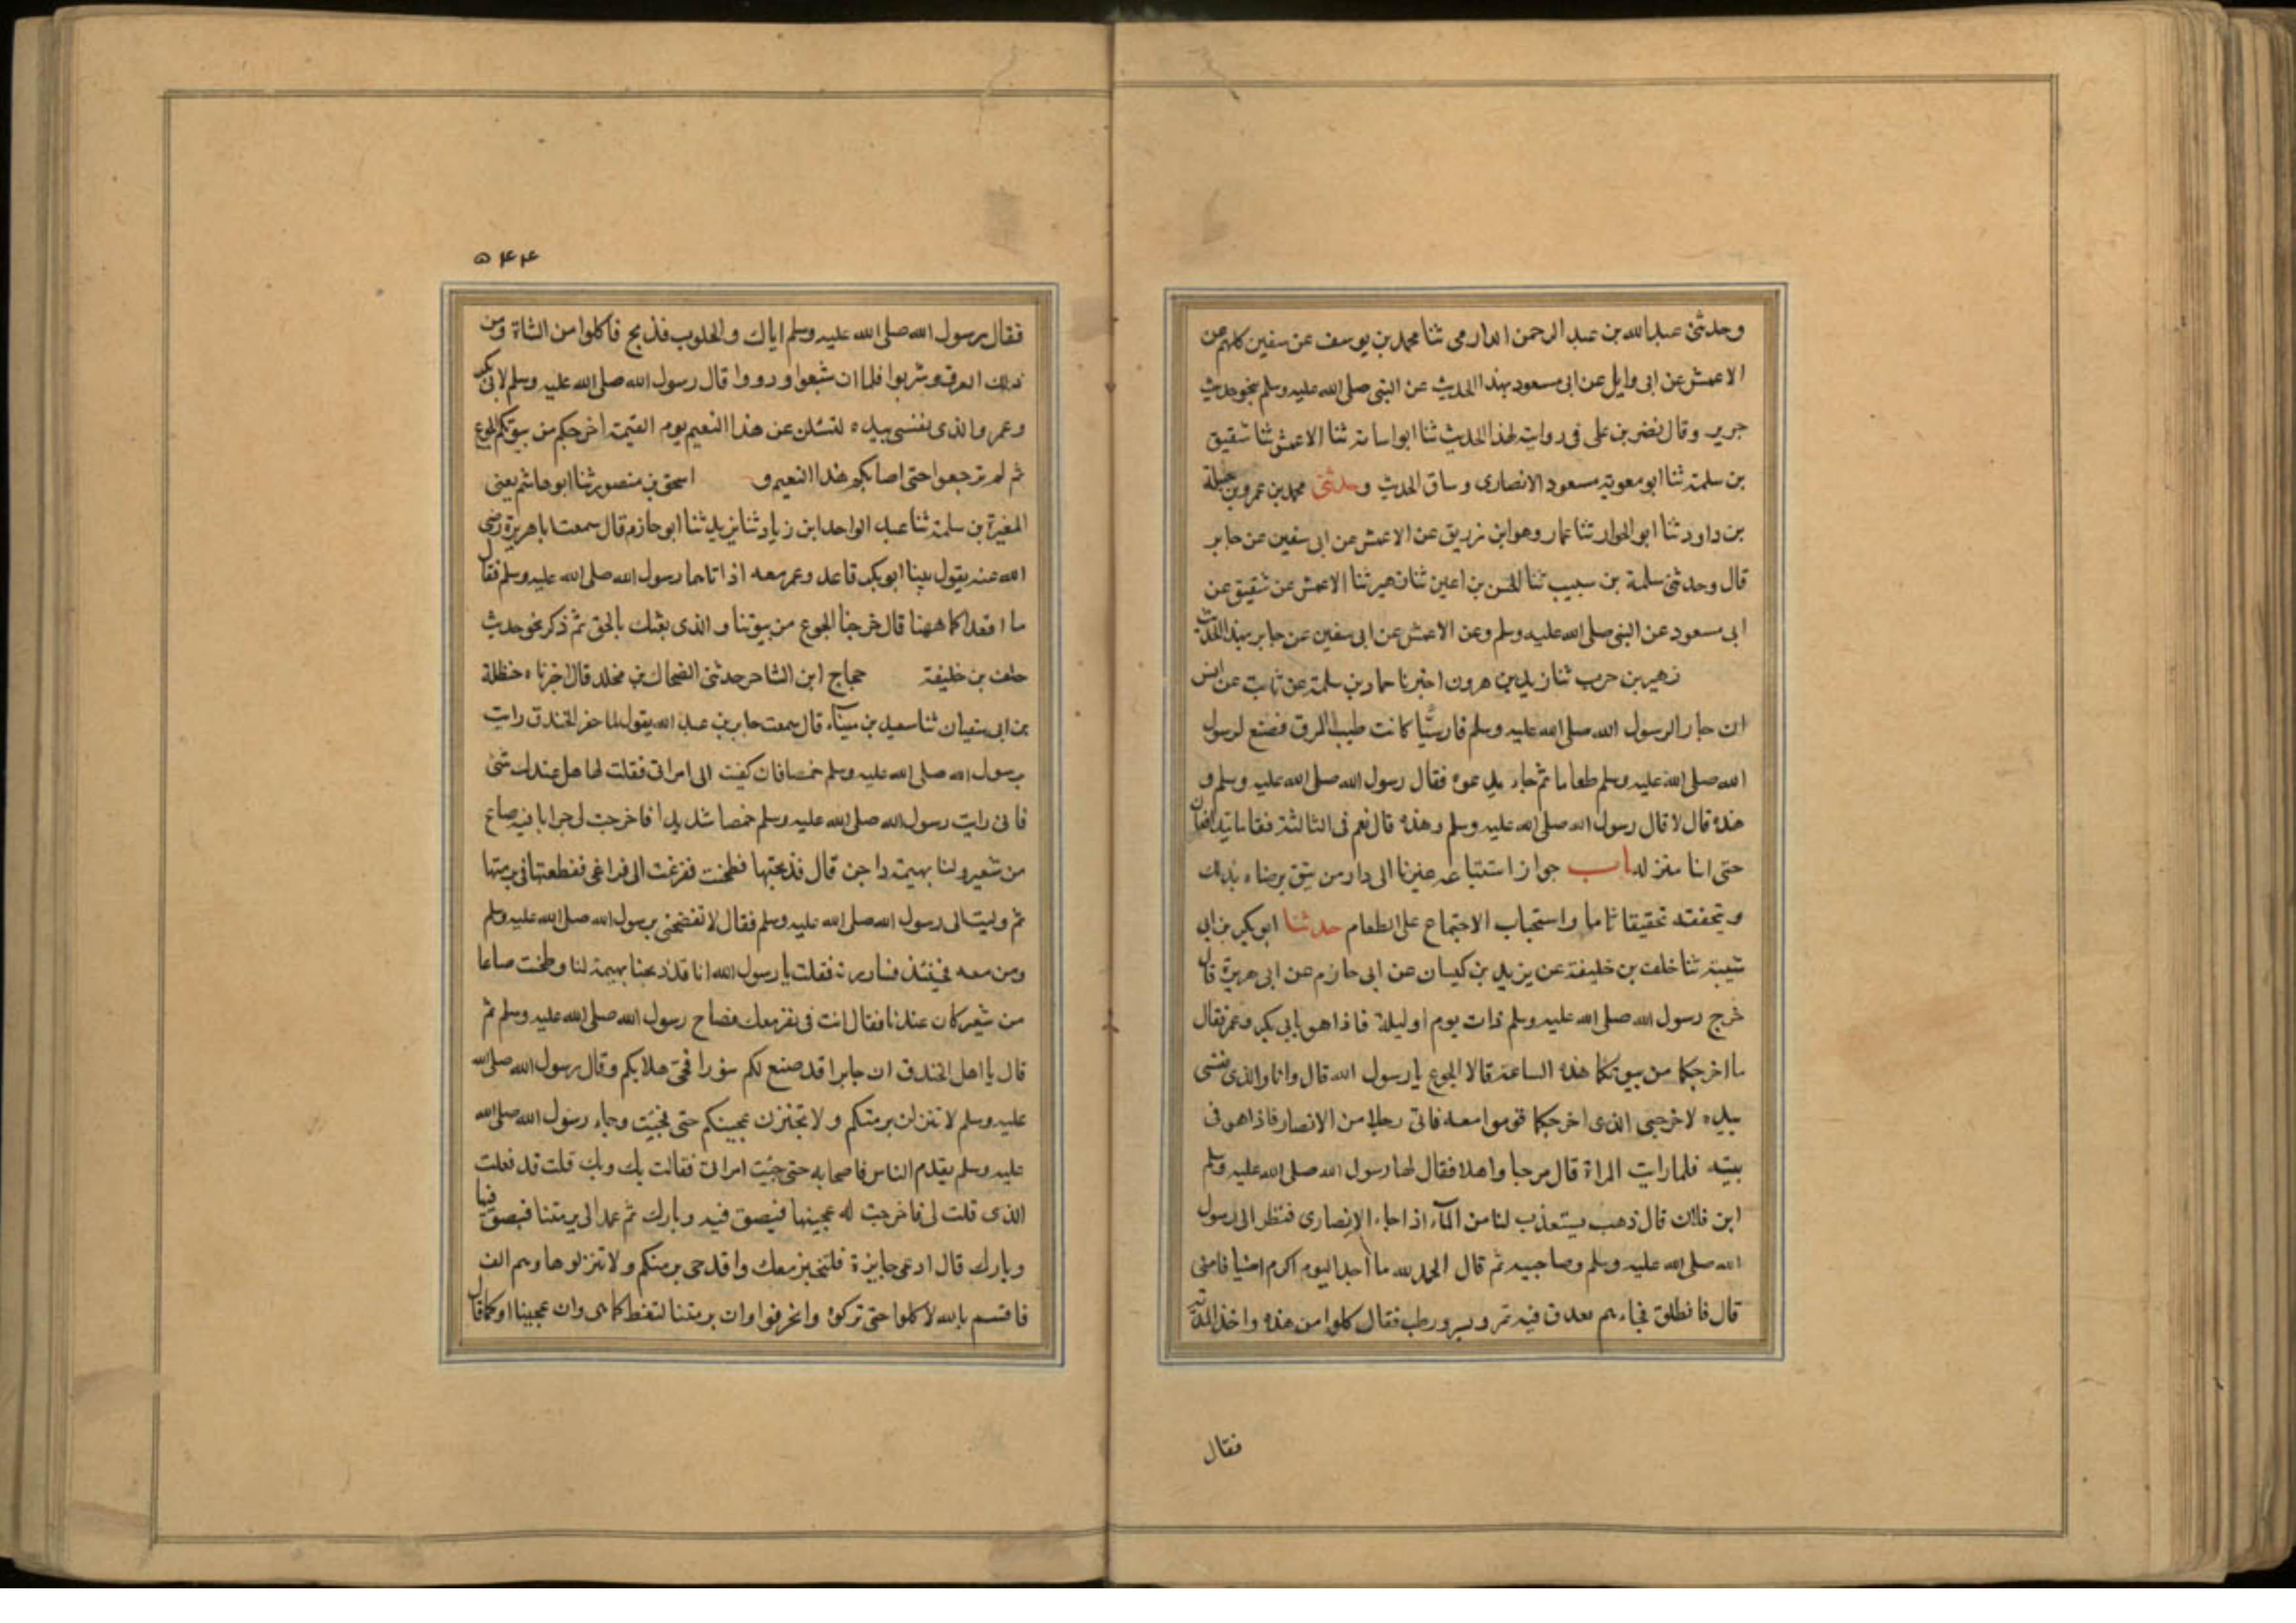 وحدثنی عبدالله بن عبد الرحمن الدارمی ثنا محمد بن یوسف عن سفین کلهم عن
الاعمش عن ابی وایل عن ابی مسعود بهذا الحدیث عن النبی صلی الله علیه وسلم بنحو حدیث
جریر وقال نضر بن علی فی روایته لهذا الحدیث ثنا ابو اسامة ثنا الاعمش ثنا شقیق
بن سلمة ثنا ابو معویة مسعود الانصاری وساق الحدیث وحدثنی محمد بن عمرو بن جبلة
بن داود ثنا ابو الجواد ثنا عمار وهو ابن زریق عن الاعمش عن ابی سفین عن جابر
قال وحدثنی سلمة بن سبیب ثنا الحسن بن اعین ثنا زهیر ثنا الاعمش عن شقیق عن
ابی مسعود عن النبی صلی الله علیه وسلم وعن الاعمش عن ابی سفین عن جابر بهذا الحدیث
زهیر بن حرب ثنا یزید بن هرون اخبرنا حماد بن سلمة عن ثابت عن انس
ان جار الرسول الله صلی الله علیه وسلم فارسیًّا کانت طیب المرق فصنع لرسول
الله صلی الله علیه وسلم طعاما ثم جاء یدعوه فقال رسول الله صلی الله علیه وسلم و
هذه قال لا قال رسول الله صلی الله علیه وسلم وهذه قال نعم فی الثالثة فقاما یتدافعان
حتی اتنا منزله باب جواز استتباعه غیرنا الی دار من یثق برضاه بذلك
ویتحققه تحقیقا تاما واستحباب الاجتماع علی الطعام حدثنا ابو بکر بن ابی
شیبة ثنا خلف بن خلیفة عن یزید بن کیسان عن ابی حازم عن ابی هریرة قال
خرج رسول الله صلی الله علیه وسلم ذات یوم او لیلة فاذا هو بابی بکر وعمر فقال
ما اخرجکما من بیوتکما هذه الساعة قالا الجوع یا رسول الله قال وانا والذی نفسی
بیده لاخرجنی الذی اخرجکما قوموا معه فاتی رجلا من الانصار فاذا هو فی
بیته فلما رایت المراة قال مرحبا واهلا فقال لها رسول الله صلی الله علیه وسلم
این فلان قال ذهب یستعذب لنا من المآء اذا جاء الانصاری فنظر الی رسول
الله صلی الله علیه وسلم وصاحبیه ثم قال الحمد لله ما احد الیوم اکرم اضیافا منی
قال فانطلق فجاءهم بعدق فیه تمر وبسر ورطب فقال کلوا من هذه واخذ المدیة
فقال
۵۴۴
فقال رسول الله صلی الله علیه وسلم ایاك والحلوب فذبح فاکلوا من الشاة ومن
ذلك العرق وشربوا فلما ان شبعوا ورووا قال رسول الله صلی الله علیه وسلم لابی بکر
وعمر والذی نفسی بیده لتسئلن عن هذا النعیم یوم القیمة اخرجکم من بیوتکم الجوع
ثم لم ترجعوا حتی اصابکم هذا النعیم و اسحق بن منصور ثنا ابو هاشم یعنی
المغیرة بن سلمة ثنا عبد الواحد ابن زیاد ثنا یزید ثنا ابو حازم قال سمعت ابا هریرة رضی
الله عنه یقول بینا ابو بکر قاعد وعمر معه اذ اتاهما رسول الله صلی الله علیه وسلم فقال
ما اقعدکما ههنا قال خرجنا الجوع من بیوتنا والذی بعثك بالحق ثم ذکر نحو حدیث
خلف بن خلیفة حجاج ابن الشاعر حدثنی الضحاك بن مخلد قال اخبرناه حنظلة
بن ابی سفیان ثنا سعید بن میناء قال سمعت جابر بن عبد الله یقول لما حفر الخندق رایت
برسول الله صلی الله علیه وسلم خمصا فانکفیت الی امراتی فقلت لها هل عندك شئ
فانی رایت رسول الله صلی الله علیه وسلم خمصا شدیدا فاخرجت لی جرابا فیه صاع
من شعیر ولنا بهیمة داجن قال فذبحتها فطحنت ففزغت الی فراغی فقطعتها فی برمتها
ثم ولیت الی رسول الله صلی الله علیه وسلم فقال لا تفضحنی برسول الله صلی الله علیه وسلم
ومن معه فجئته فساررته فقلت یا رسول الله انا قد ذبحنا بهیمة لنا وطحنت صاعا
من شعیر کان عندنا فقال انت فی نفر معك فصاح رسول الله صلی الله علیه وسلم ثم
قال یا اهل الخندق ان جابرا قد صنع لکم سؤرا فحی هلا بکم وقال رسول الله صلی الله
علیه وسلم لا تنزلن برمتکم ولا تخبزن عجینکم حتی فجئیت وجاء رسول الله صلی الله
علیه وسلم یقدم الناس فاصحابه حتی جئیت امراتی فقالت بك وبك قلت قد فعلت
الذی قلت لی فاخرجت له عجینها فبصق فیه وبارك ثم عمد الی برمتنا فبصق فیها
وبارك قال ادعی خابزة فلتخبز معك واقدحی برمتکم ولا تنزلوها وهم الف
فاقسم بالله لاکلوا حتی ترکوه وانحرفوا وان برمتنا لتغط کما هی وان عجیننا او کما قال